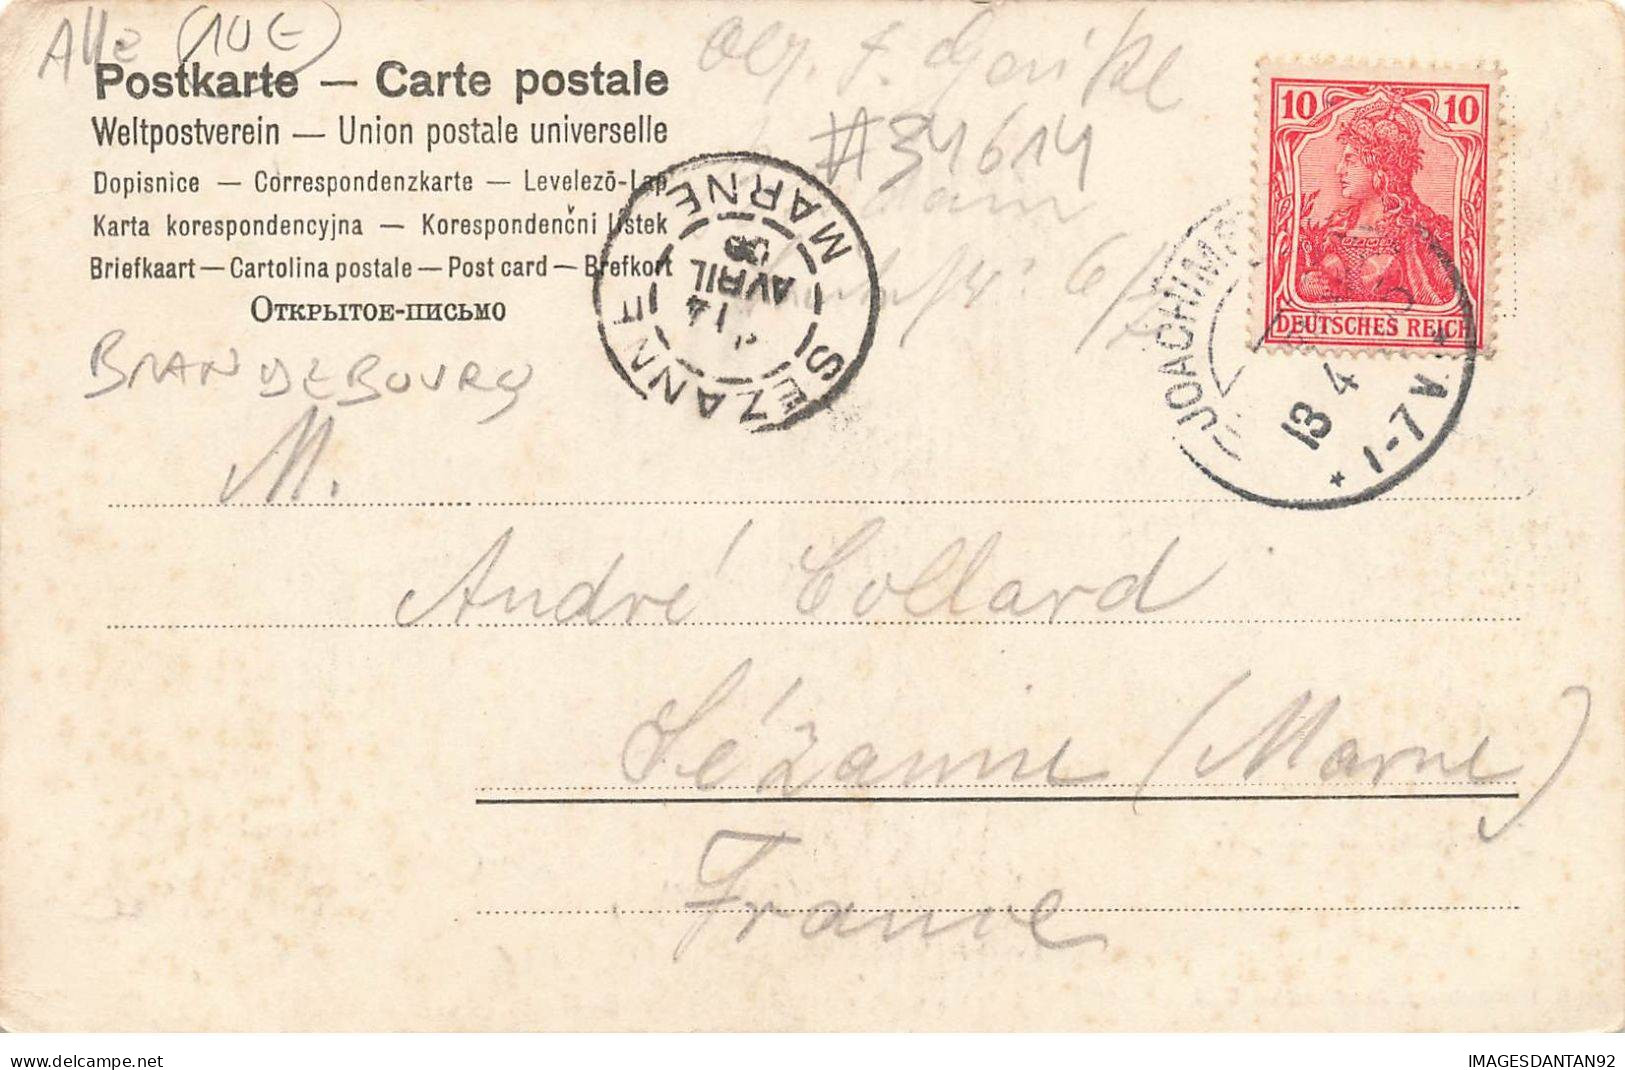 Alle (10€)
Postkarte — Carte postale
Weltpostverein — Union postale universelle
Dopisnice — Correspondenzkarte — Levelező-Lap
Karta korespondencyjna — Korespondenční lístek
Briefkaart — Cartolina postale — Post card — Brefkort
Открытое-письмо
BRANDEBOURG
#34614
SEZANNE
14
AVRIL
MARNE
10 10
DEUTSCHES REICH
JOACHIMS
13 4
* 1-7 V.
M.
André Collard
Sézanne (Marne)
France
IMAGESDANTAN92